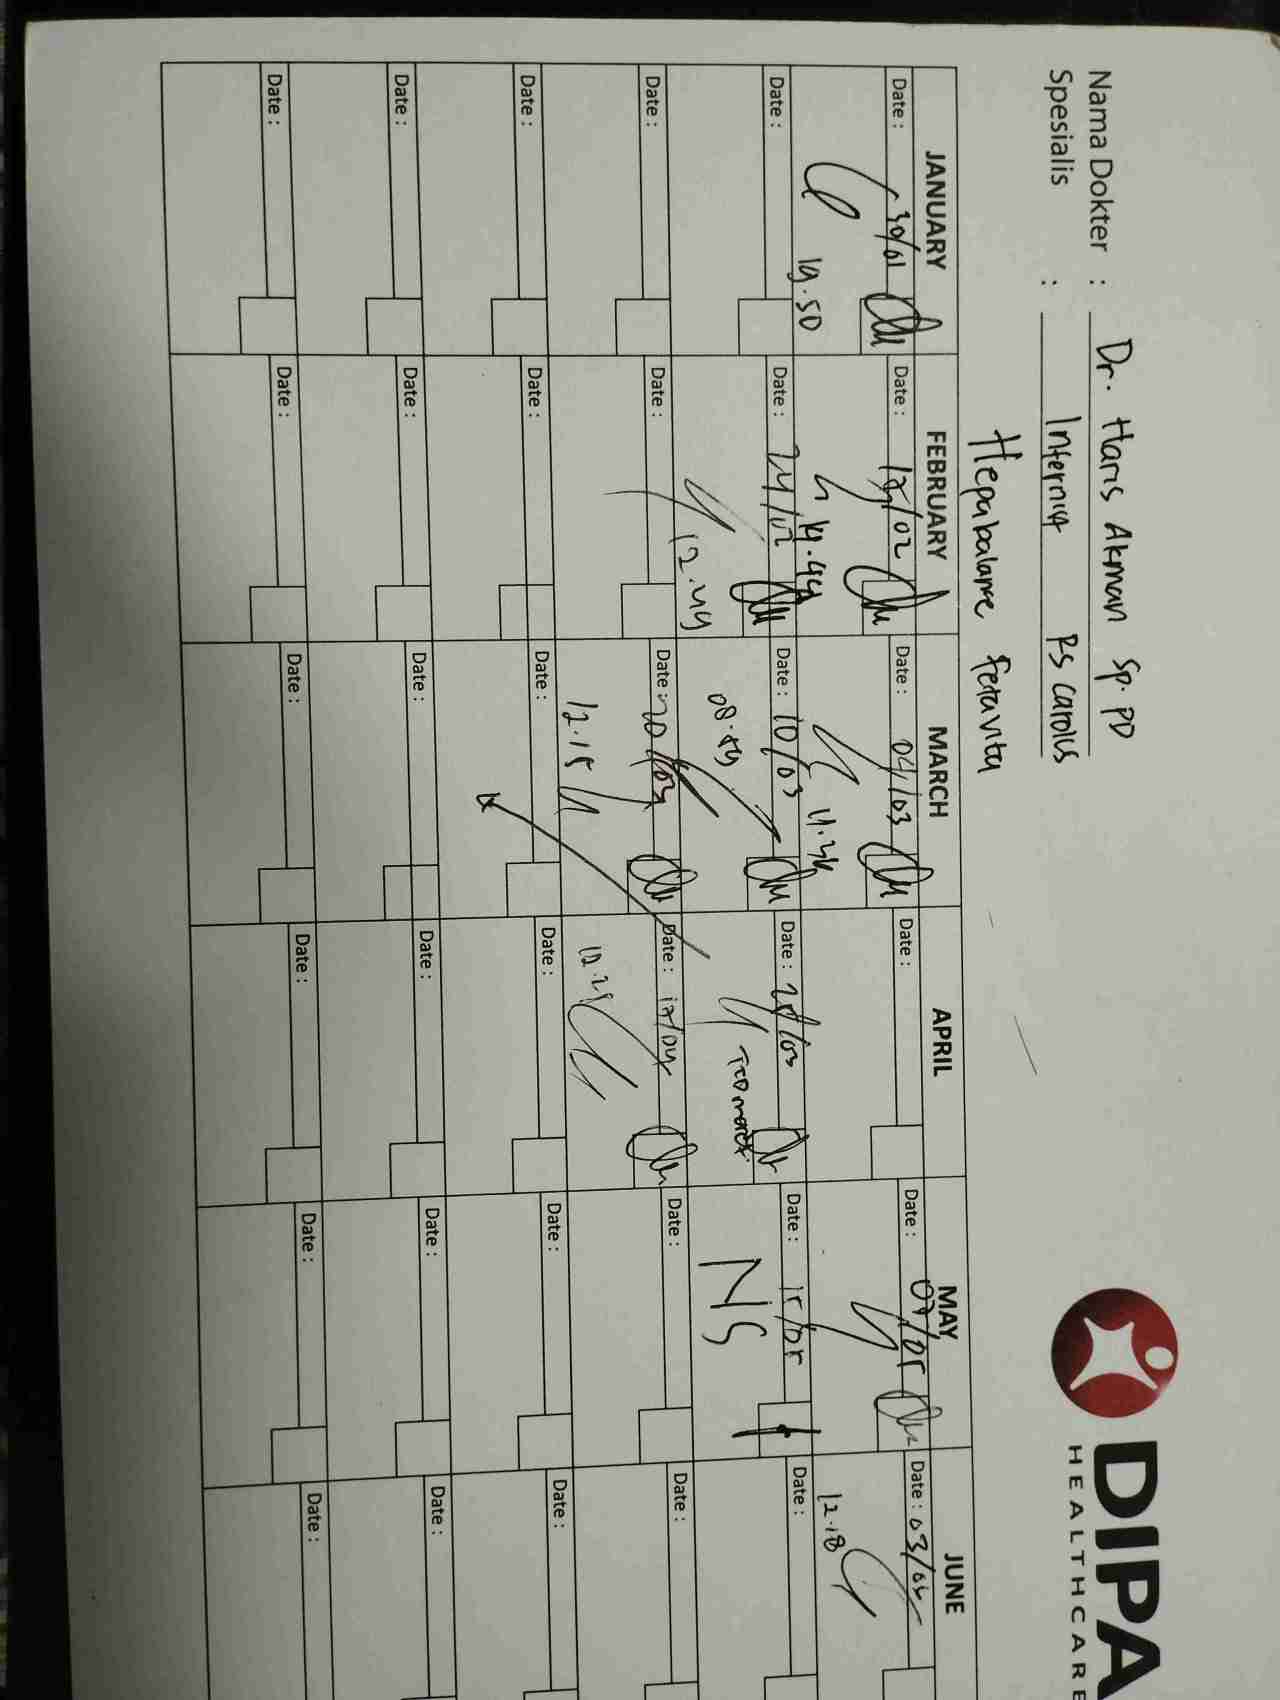 DIPA
HEALTHCARE
Nama Dokter : Dr. Haris Akman Sp. PD
Spesialis : Internis RS Carolus
Hepabalance Feravita
JANUARY FEBRUARY MARCH APRIL MAY JUNE
Date : 30/01 Date : 17/02 Date : 04/03 Date : Date : 07/05 Date : 03/06
19.50 12.18
Date : Date : 24/02 Date : 10/03 Date : 28/03 Date : 15/05 Date :
12.49 08.59 NS
Date : Date : Date : 20/03 Date : 17/04 Date : Date :
12.15
Date : Date : Date : Date : Date : Date :
Date : Date : Date : Date : Date : Date :
Date : Date : Date : Date : Date : Date :